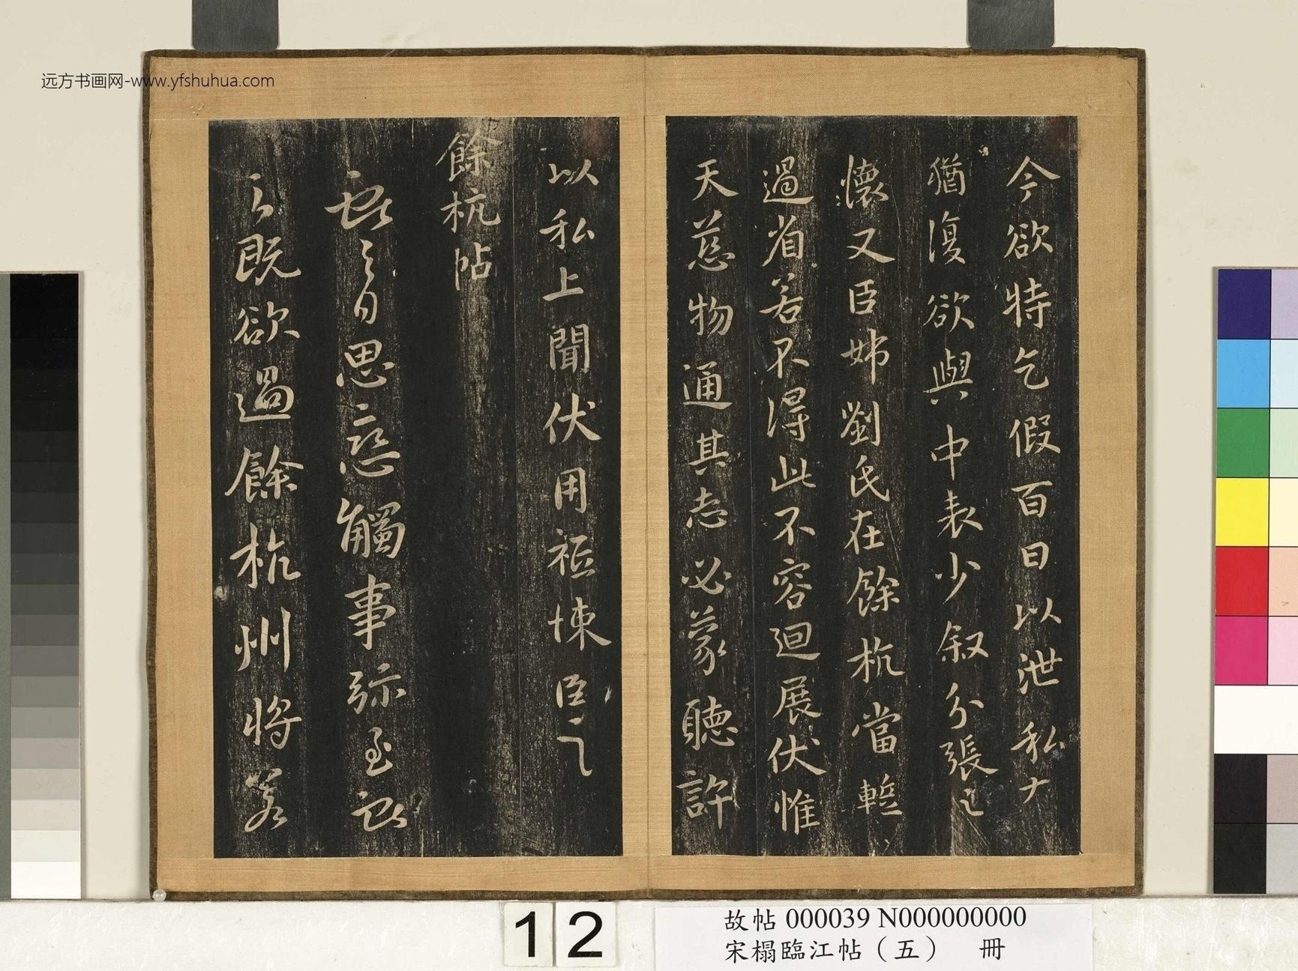 远方书画网-www.yfshuhua.com
今欲特乞假百日以泄私
猶復欲與中表少叙分張
懷又臣姊劉氏在餘杭當蹔
過省若不得此不容迴展伏惟
天慈物通其志必蒙聽許
以私上聞伏用祗悚臣之
餘杭帖
思戀觸事弥至
既欲過餘杭州將
12
故帖 000039 N000000000
宋榻臨江帖（五） 冊